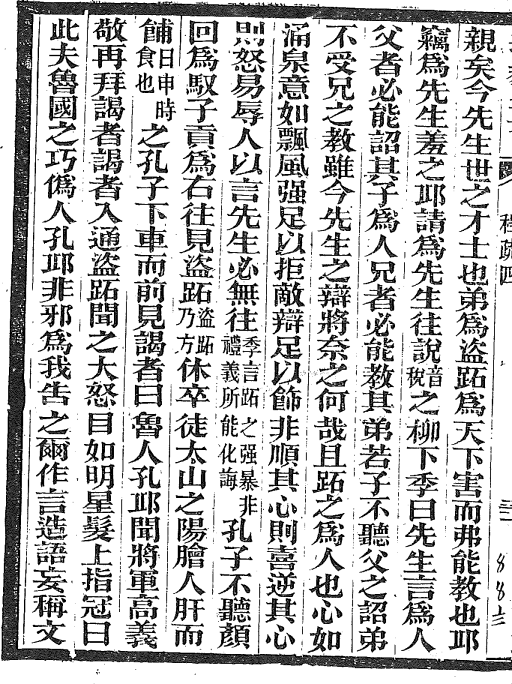 親矣今先生世之才士也弟爲盜跖爲天下害而弗能教也丘
竊爲先生羞之丘請爲先生往說音稅之柳下季曰先生言爲人
父者必能詔其子爲人兄者必能教其弟若子不聽父之詔弟
不受兄之教雖今先生之辯將奈之何哉且跖之爲人也心如
涌泉意如飄風强足以拒敵辯足以飾非順其心則喜逆其心
則怒易辱人以言先生必無往季言跖之强暴非禮義所能化誨孔子不聽顏
回爲馭子貢爲右往見盜跖盜跖乃方休卒徒太山之陽膾人肝而
餔日申時食也之孔子下車而前見謁者曰魯人孔丘聞將軍高義
敬再拜謁者謁者入通盜跖聞之大怒目如明星髮上指冠曰
此夫魯國之巧僞人孔丘非邪爲我告之爾作言造語妄稱文